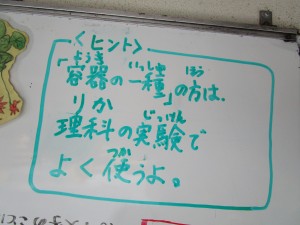 <ヒント>
ようき いっしゅ ほう
「容器の一種」の方は、
りか じっけん
理科の実験で
つか
よく使うよ。